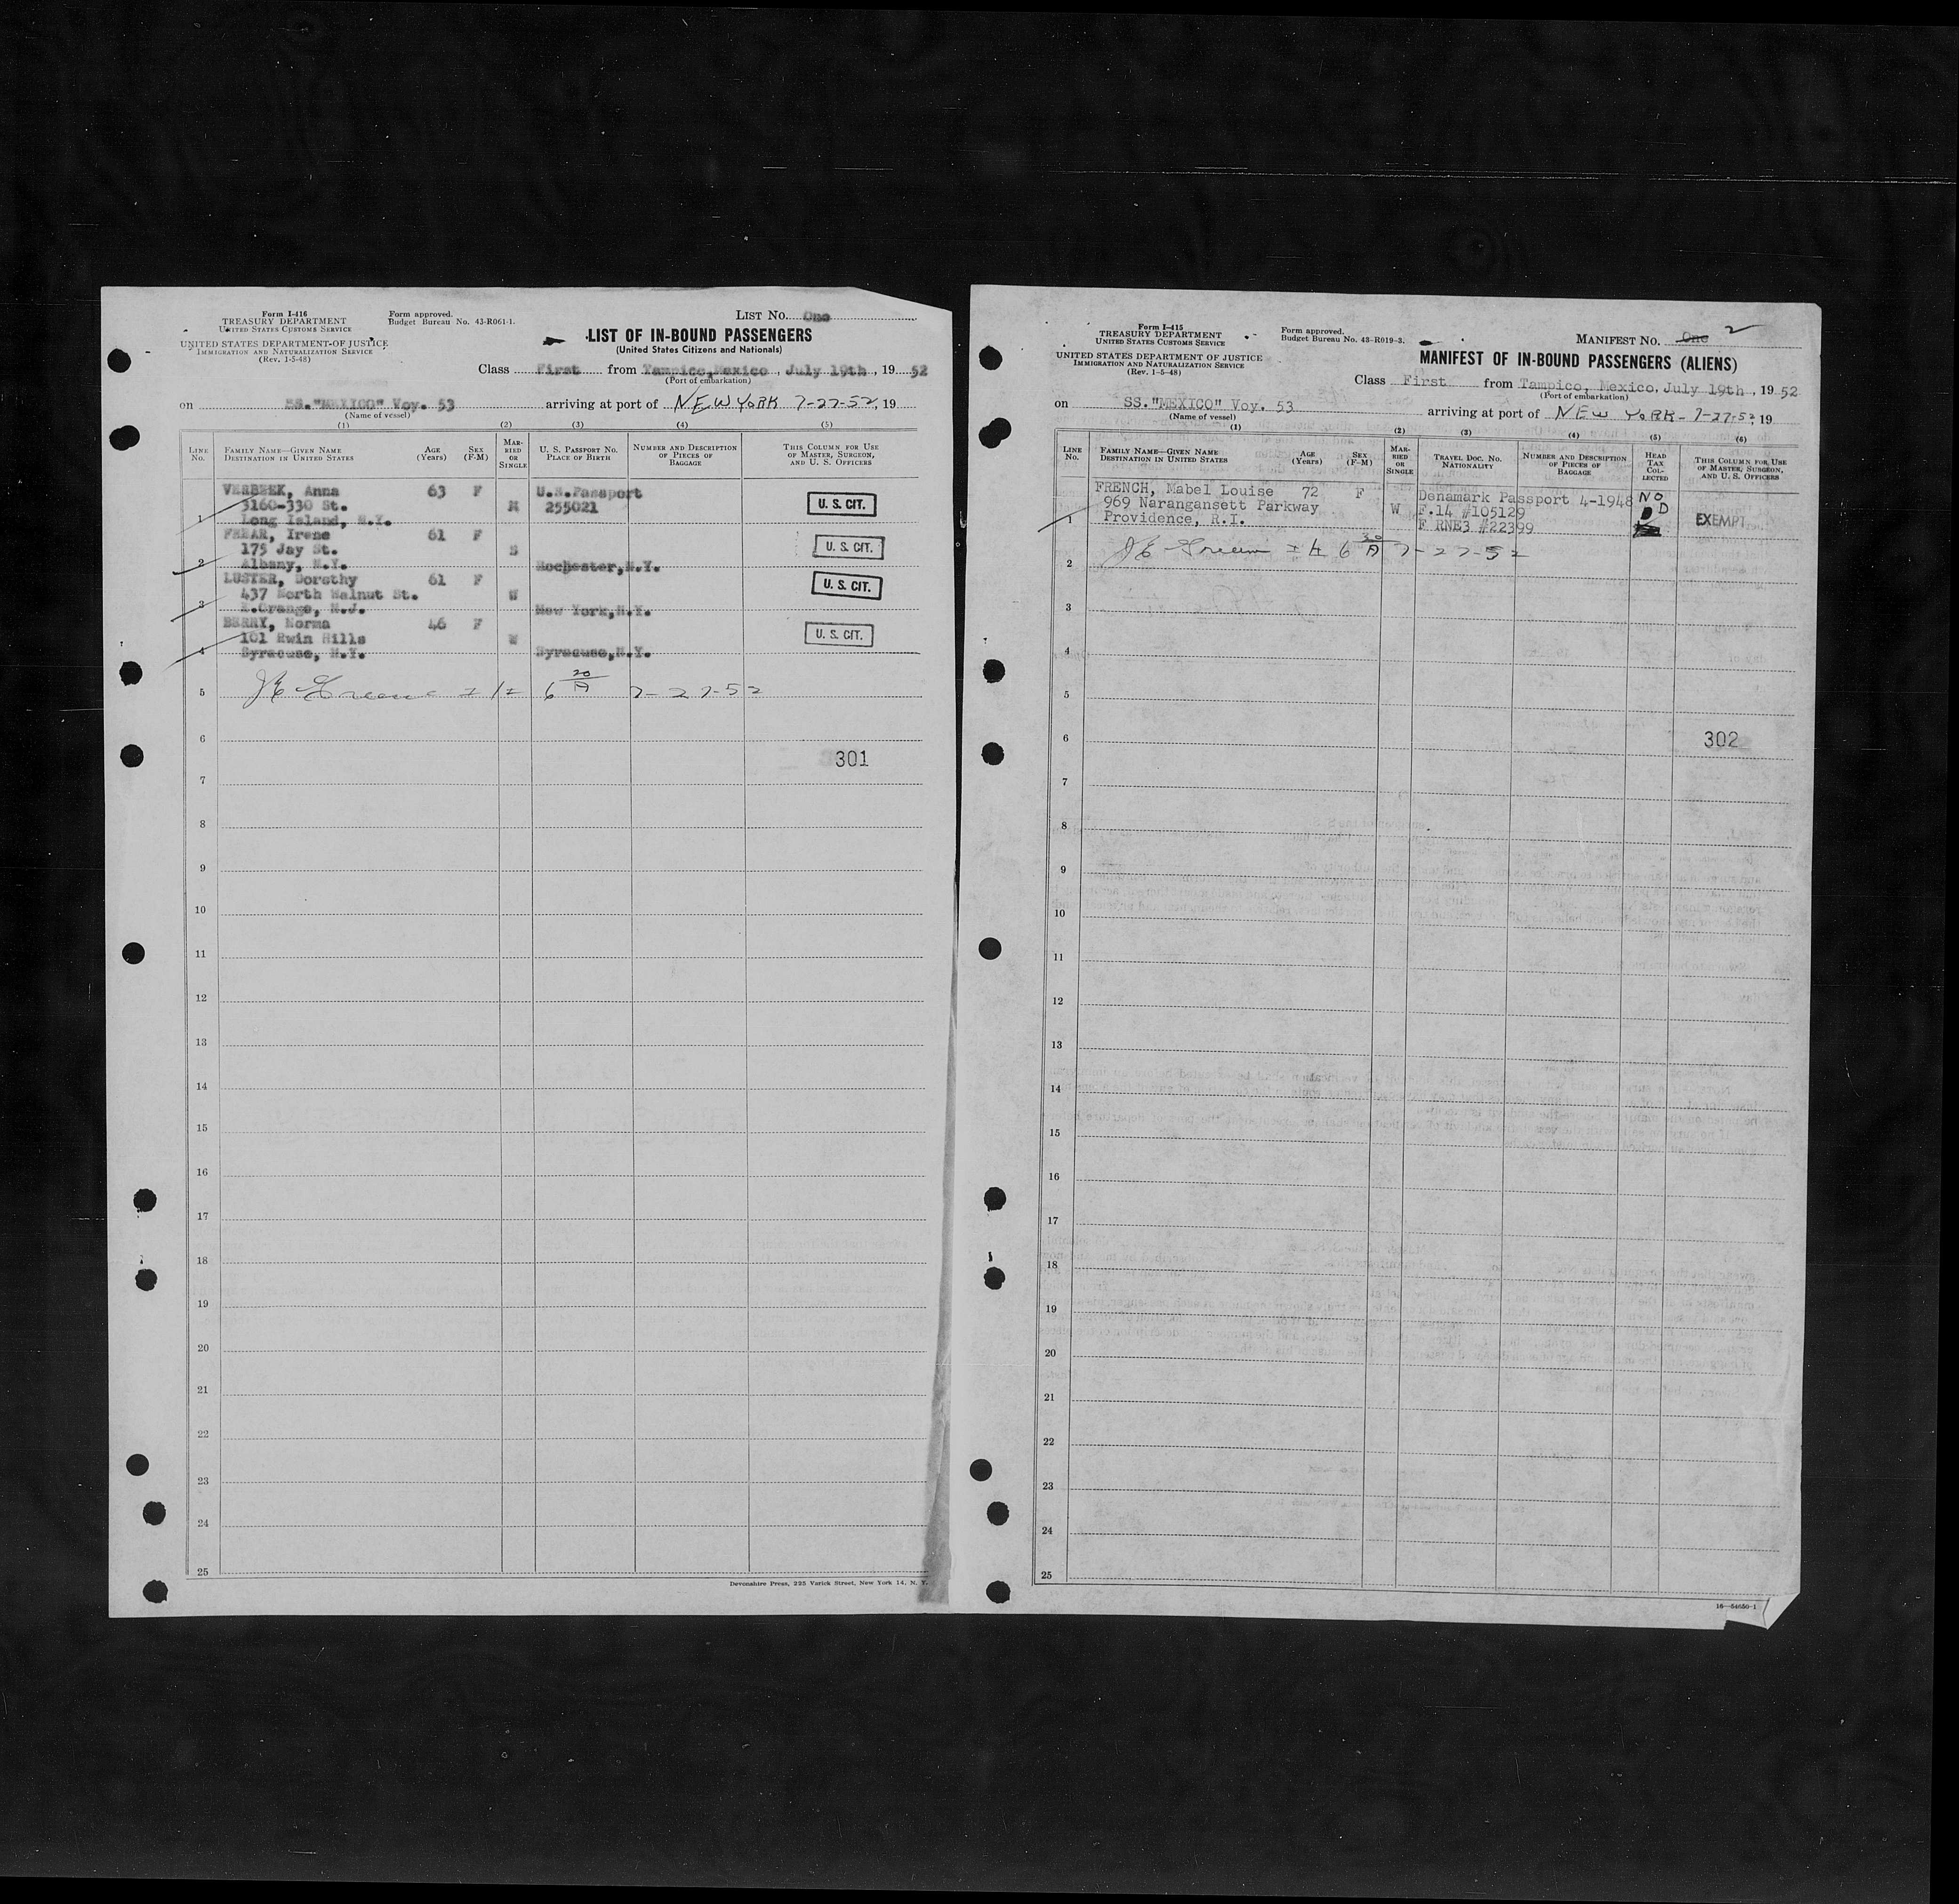 Form I-416
TREASURY DEPARTMENT
UNITED STATES CUSTOMS SERVICE
UNITED STATES DEPARTMENT OF JUSTICE
IMMIGRATION AND NATURALIZATION SERVICE
(Rev. 1-5-48)
Form approved.
Budget Bureau No. 43-R061-1.
LIST NO. One
LIST OF IN-BOUND PASSENGERS
(United States Citizens and Nationals)
Class First from Tampico, Mexico, July 19th, 1952
(Port of embarkation)
on SS. "MEXICO" Voy. 53 arriving at port of NEW YORK 7-27-52, 19
(Name of vessel)
(1) (2) (3) (4) (5)
LINE NO. FAMILY NAME—GIVEN NAME DESTINATION IN UNITED STATES AGE (Years) SEX (F-M) MARRIED OR SINGLE U. S. PASSPORT NO. PLACE OF BIRTH NUMBER AND DESCRIPTION OF PIECES OF BAGGAGE THIS COLUMN FOR USE OF MASTER, SURGEON, AND U. S. OFFICERS
VERBEEK, Anna 63 F U.S.Passport
3160-330 St. M 255021 U. S. CIT.
1 Long Island, N.Y.
FREAR, Irene 61 F
175 Jay St. S U. S. CIT.
2 Albany, N.Y. Rochester, N.Y.
LUSTER, Dorothy 61 F U. S. CIT.
437 North Walnut St. W
3 E.Orange, N.J. New York, N.Y.
BERRY, Norma 46 F
101 Rwin Hills W U. S. CIT.
4 Syracuse, N.Y. Syracuse, N.Y.
5 Greene 6 20/A 7-27-52
6
301
7
8
9
10
11
12
13
14
15
16
17
18
19
20
21
22
23
24
25
Devonshire Press, 225 Varick Street, New York 14, N. Y.
Form I-415
TREASURY DEPARTMENT
UNITED STATES CUSTOMS SERVICE
UNITED STATES DEPARTMENT OF JUSTICE
IMMIGRATION AND NATURALIZATION SERVICE
(Rev. 1-5-48)
Form approved.
Budget Bureau No. 43-R019-3.
MANIFEST NO. One 2
MANIFEST OF IN-BOUND PASSENGERS (ALIENS)
Class First from Tampico, Mexico, July 19th, 1952
(Port of embarkation)
on SS."MEXICO" Voy. 53 arriving at port of NEW YORK - 7-27-52, 19
(Name of vessel)
(1) (2) (3) (4) (5) (6)
LINE NO. FAMILY NAME—GIVEN NAME DESTINATION IN UNITED STATES AGE (Years) SEX (F-M) MARRIED OR SINGLE TRAVEL DOC. NO. NATIONALITY NUMBER AND DESCRIPTION OF PIECES OF BAGGAGE HEAD TAX COLLECTED THIS COLUMN FOR USE OF MASTER, SURGEON, AND U. S. OFFICERS
FRENCH, Mabel Louise 72 F Denamark Passport 4-1948 NO
969 Narangansett Parkway W F.14 #105129 D
1 Providence, R.I. F RNE3 #22399 EXEMPT
Greene 6 30/A 7-27-52
2
3
4
5
6 302
7
8
9
10
11
12
13
14
15
16
17
18
19
20
21
22
23
24
25
16—54650-1